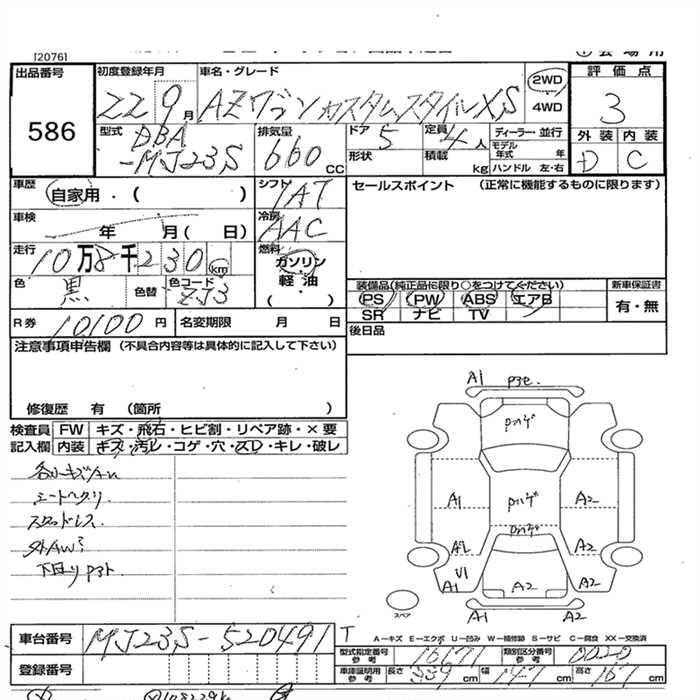 [2076]
出品番号 初度登録年月 車名・グレード 2WD 評価点
586 22 9月 AZワゴン カスタムスタイルXS 4WD 3
型式 DBA-MJ23S 排気量 660 CC ドア 5 定員 4人 ディーラー・並行 外装 内装
形状 積載 kg モデル年式 年 ハンドル 左・右 D C
車歴 自家用・( ) シフト IAT セールスポイント (正常に機能するものに限ります)
車検 年 月( 日) 冷房 AAC
走行 10万8千230km 燃料 ガソリン
軽油
( )
色 黒 色替 色コード ZJ3 装備品(純正品に限り○をつけてください) 新車保証書
PS PW ABS エアB 有・無
SR ナビ TV
R券 10100円 名変期限 月 日 後日品
注意事項申告欄 (不具合内容等は具体的に記入して下さい)
修復歴 有 (箇所 )
検査員 FW キズ・飛石・ヒビ割・リペア跡・×要
記入欄 内装 キズ・汚レ・コゲ・穴・スレ・キレ・破レ
シートヘタリ
スタッドレス
A1
A1 A2
A2 A2
A1 U1 A2 A2
A1 A2
スペア
車台番号 MJ23S-520491 T A−キズ E−エクボ U−凹み W−補修跡 S−サビ C−腐食 XX−交換済
登録番号 型式指定番号 参考 16671 類別区分番号 参考 0020
車庫証明用 参考 長さ 339cm 幅 147cm 高さ 167cm